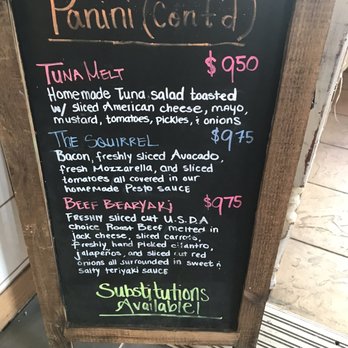 Panini (Cont'd)
Tuna Melt $9.50
Homemade Tuna salad toasted
w/ sliced American cheese, mayo,
mustard, tomatoes, pickles, & onions
The Squirrel $9.75
Bacon, freshly sliced Avocado,
fresh Mozzarella, and sliced
tomatoes all covered in our
homemade Pesto sauce
Beef Bearyaki $9.75
Freshly sliced cut U.S.D.A
choice Roast Beef melted in
jack cheese, sliced carrots,
freshly hand picked cilantro,
jalapeños, and sliced cut red
onions all surrounded in sweet n
salty teriyaki sauce
Substitutions
Available!